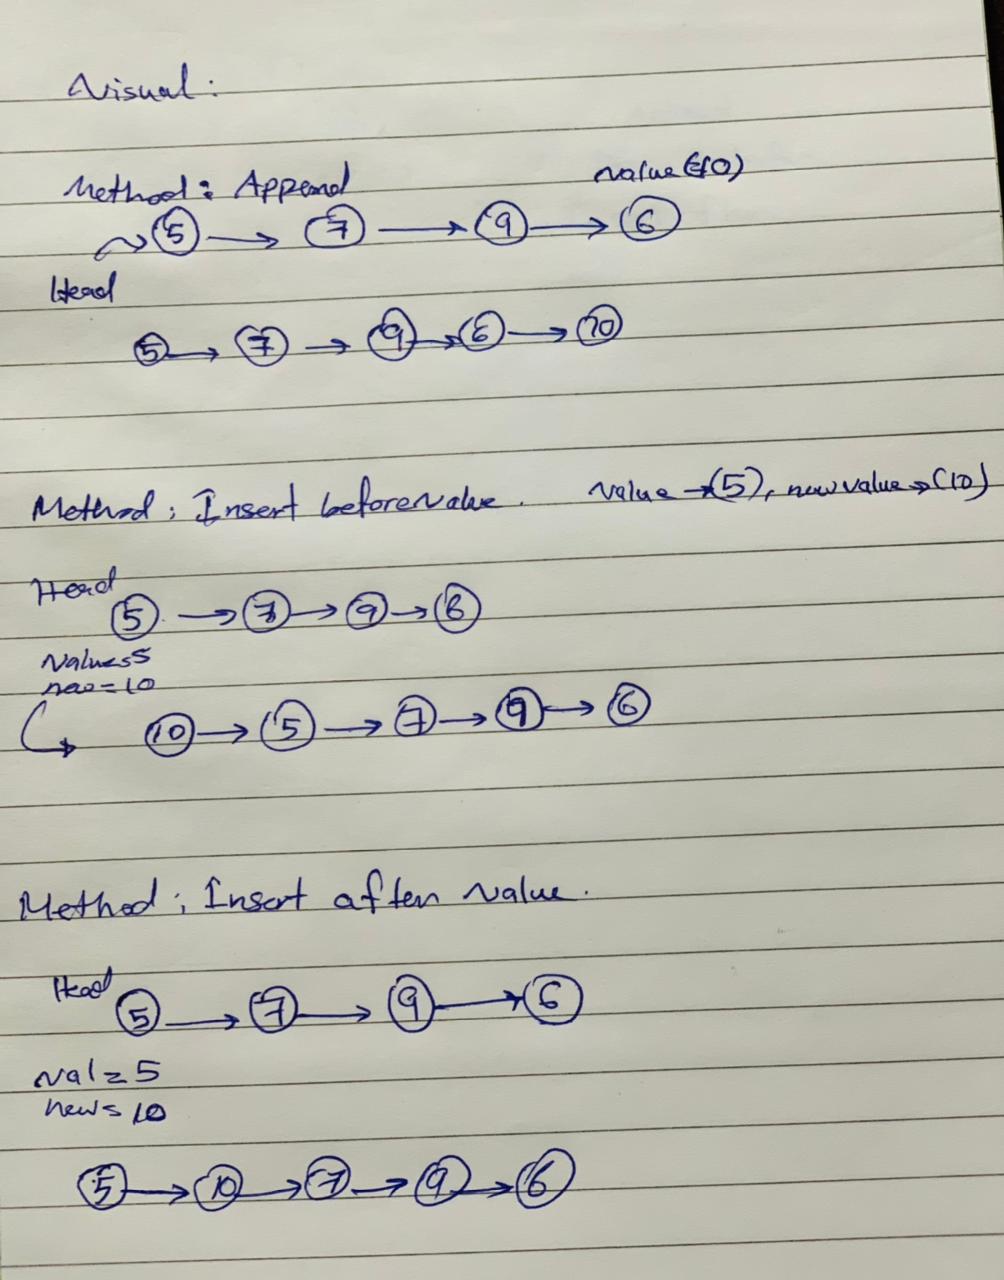 Visual:
Method: Append value(10)
5 → 7 → 9 → 6
Head
5 → 7 → 9 → 6 → 10
Method: Insert before value. value → (5), new value → (10)
Head
5 → 7 → 9 → 6
Value=5
new=10
10 → 5 → 7 → 9 → 6
Method: Insert after value.
Head
5 → 7 → 9 → 6
val=5
new=10
5 → 10 → 7 → 9 → 6